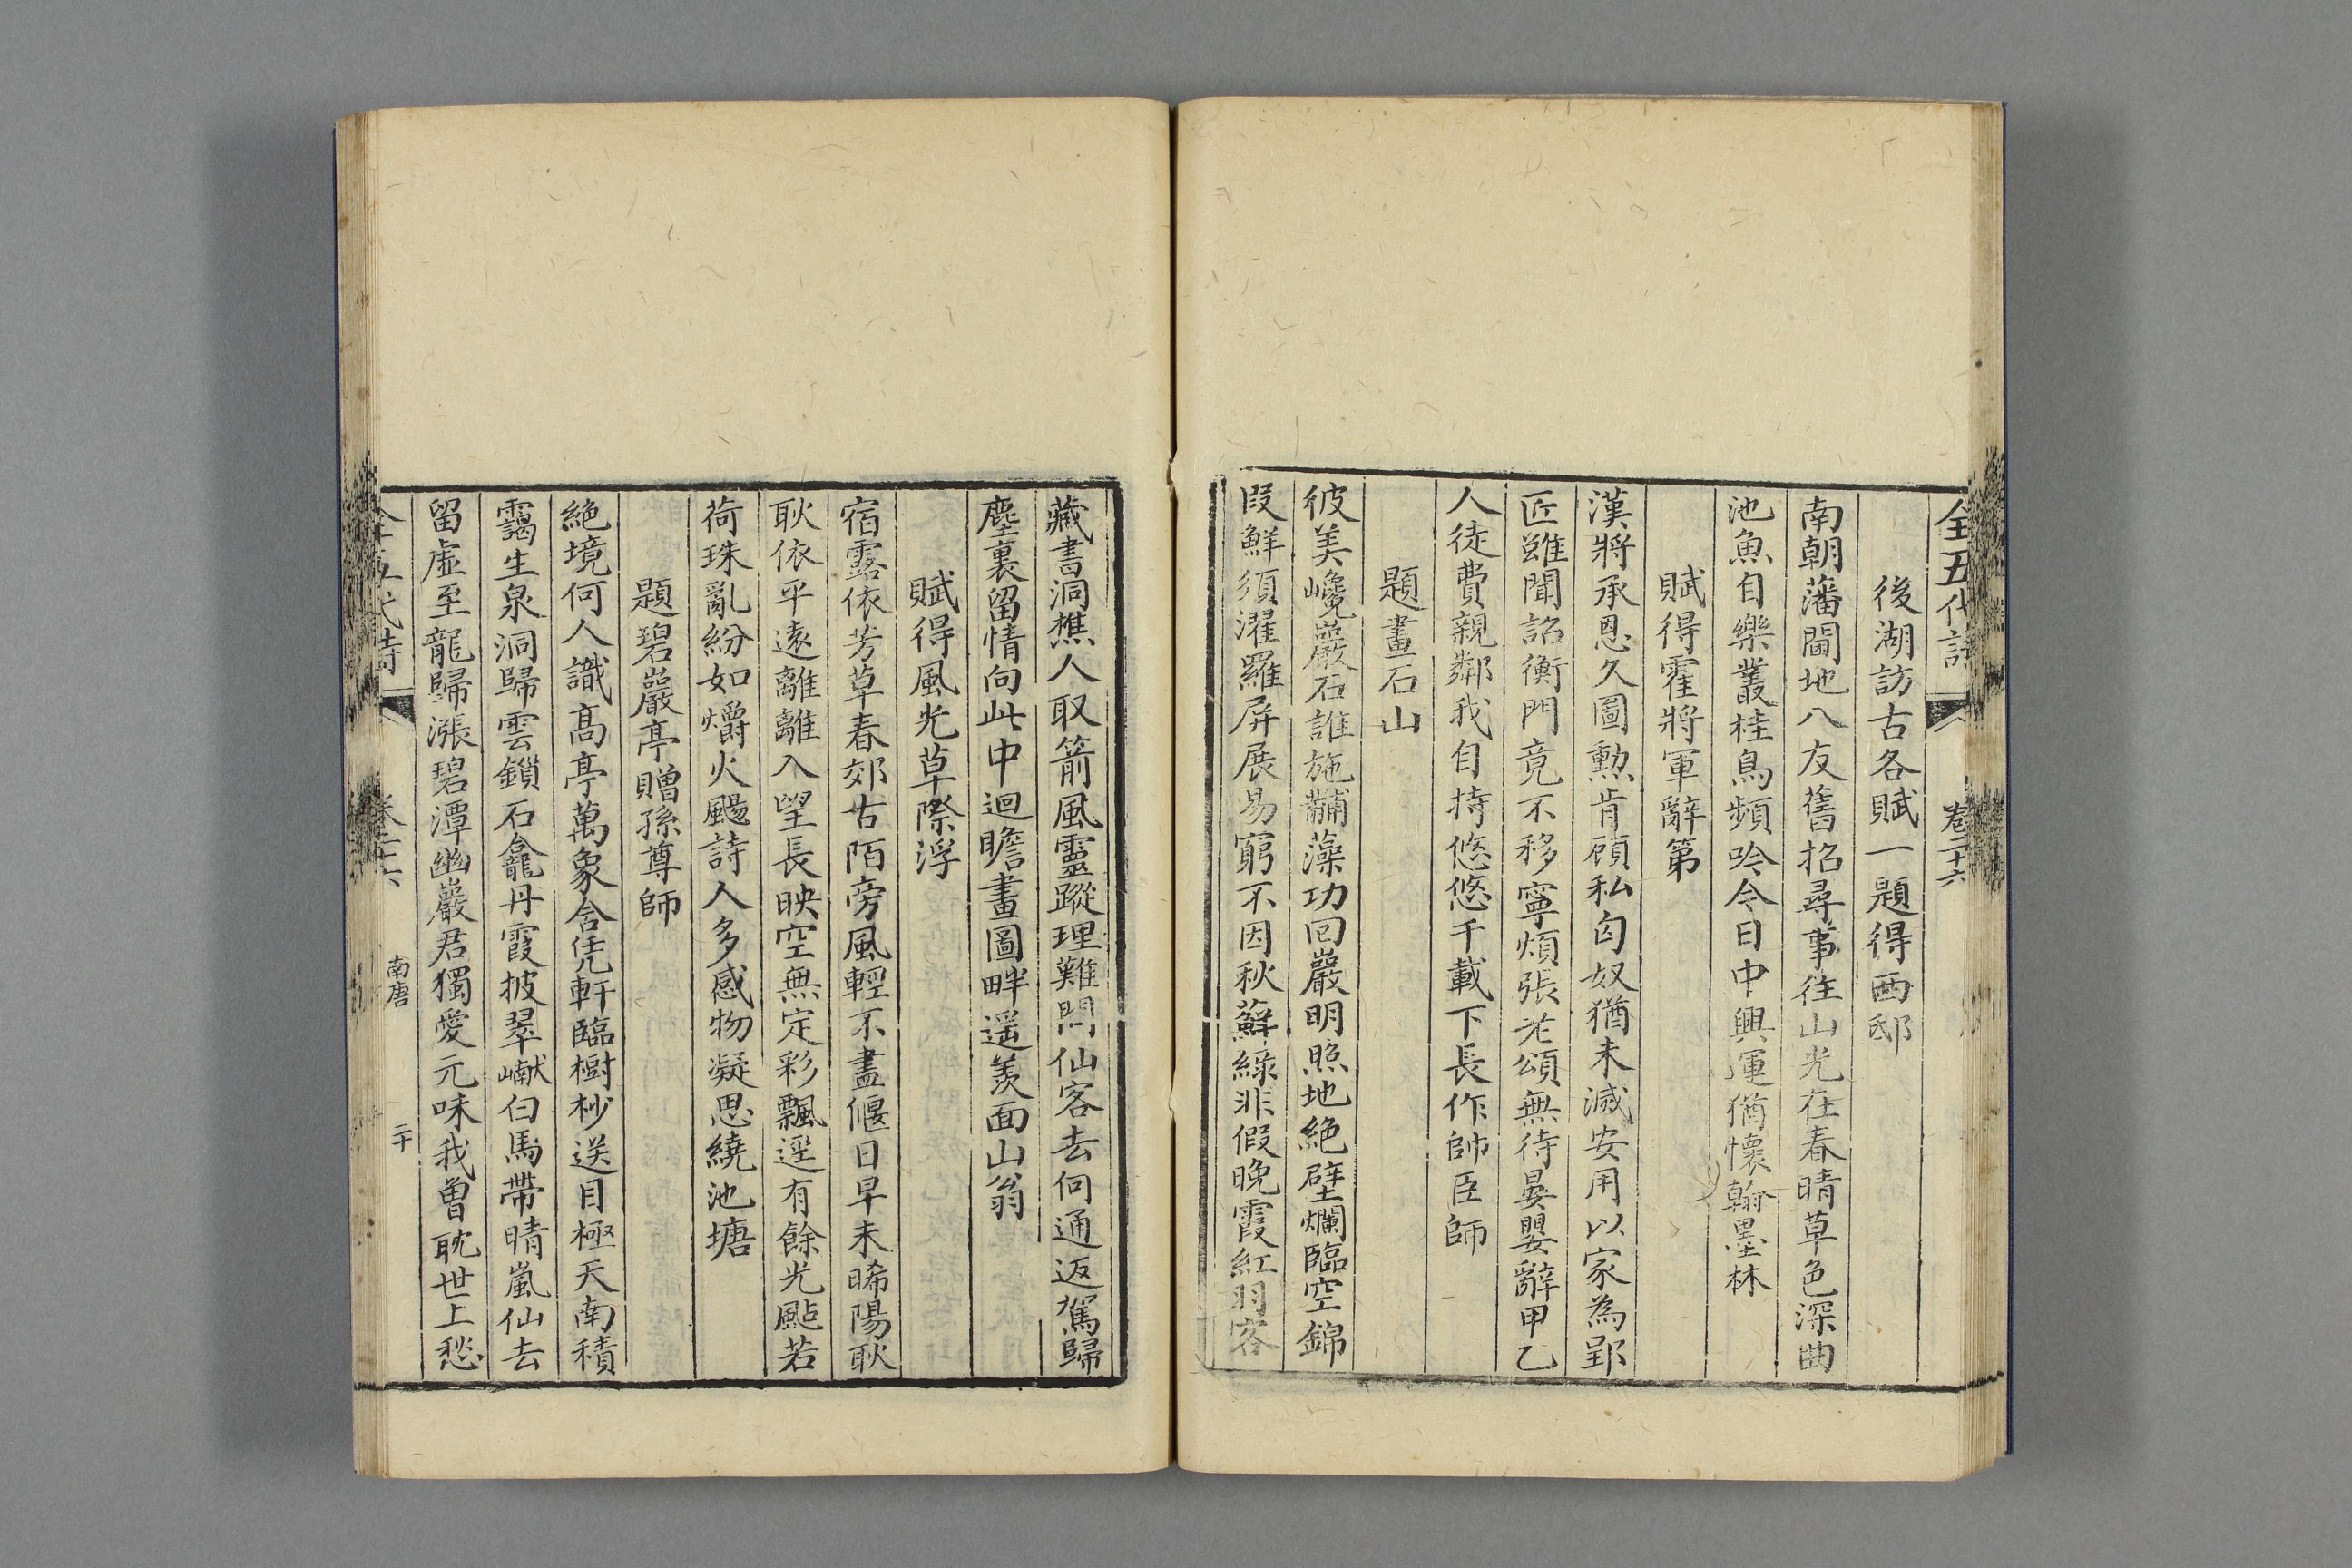 全五代詩 卷二十六
後湖訪古各賦一題得西邸
南朝藩閫地八友舊招尋事往山光在春晴草色深曲
池魚自樂叢桂鳥頻吟今日中興運猶懷翰墨林
賦得霍將軍辭第
漢將承恩久圖勲肯顧私匈奴猶未滅安用以家為郢
匠雖聞詔衡門竟不移寧煩張老頌無待晏嬰辭甲乙
人徒費親鄰我自持悠悠千載下長作帥臣師
題畫石山
彼美巉巖石誰施黼藻功回巖明照地絶壁爛臨空錦
叚鮮須濯羅屏展易窮不因秋蘚緑非假晚霞紅羽客
藏書洞樵人取箭風靈蹤理難問仙客去何通返駕歸
塵裏留情向此中迴瞻畫圖畔遥羨面山翁
賦得風光草際浮
宿露依芳草春郊古陌旁風輕不盡偃日早未晞陽耿
耿依平遠離離入望長映空無定彩飄遥有餘光颭若
荷珠亂紛如爝火颺詩人多感物凝思繞池塘
題碧巖亭贈孫尊師
絶境何人識高亭萬象含凭軒臨樹杪送目極天南積
靄生泉洞歸雲鎖石龕丹霞披翠巘白馬帶晴嵐仙去
留虚至龍歸漲碧潭幽巖君獨愛元味我曽耽世上愁
全五代詩 卷二十六 南唐 二十